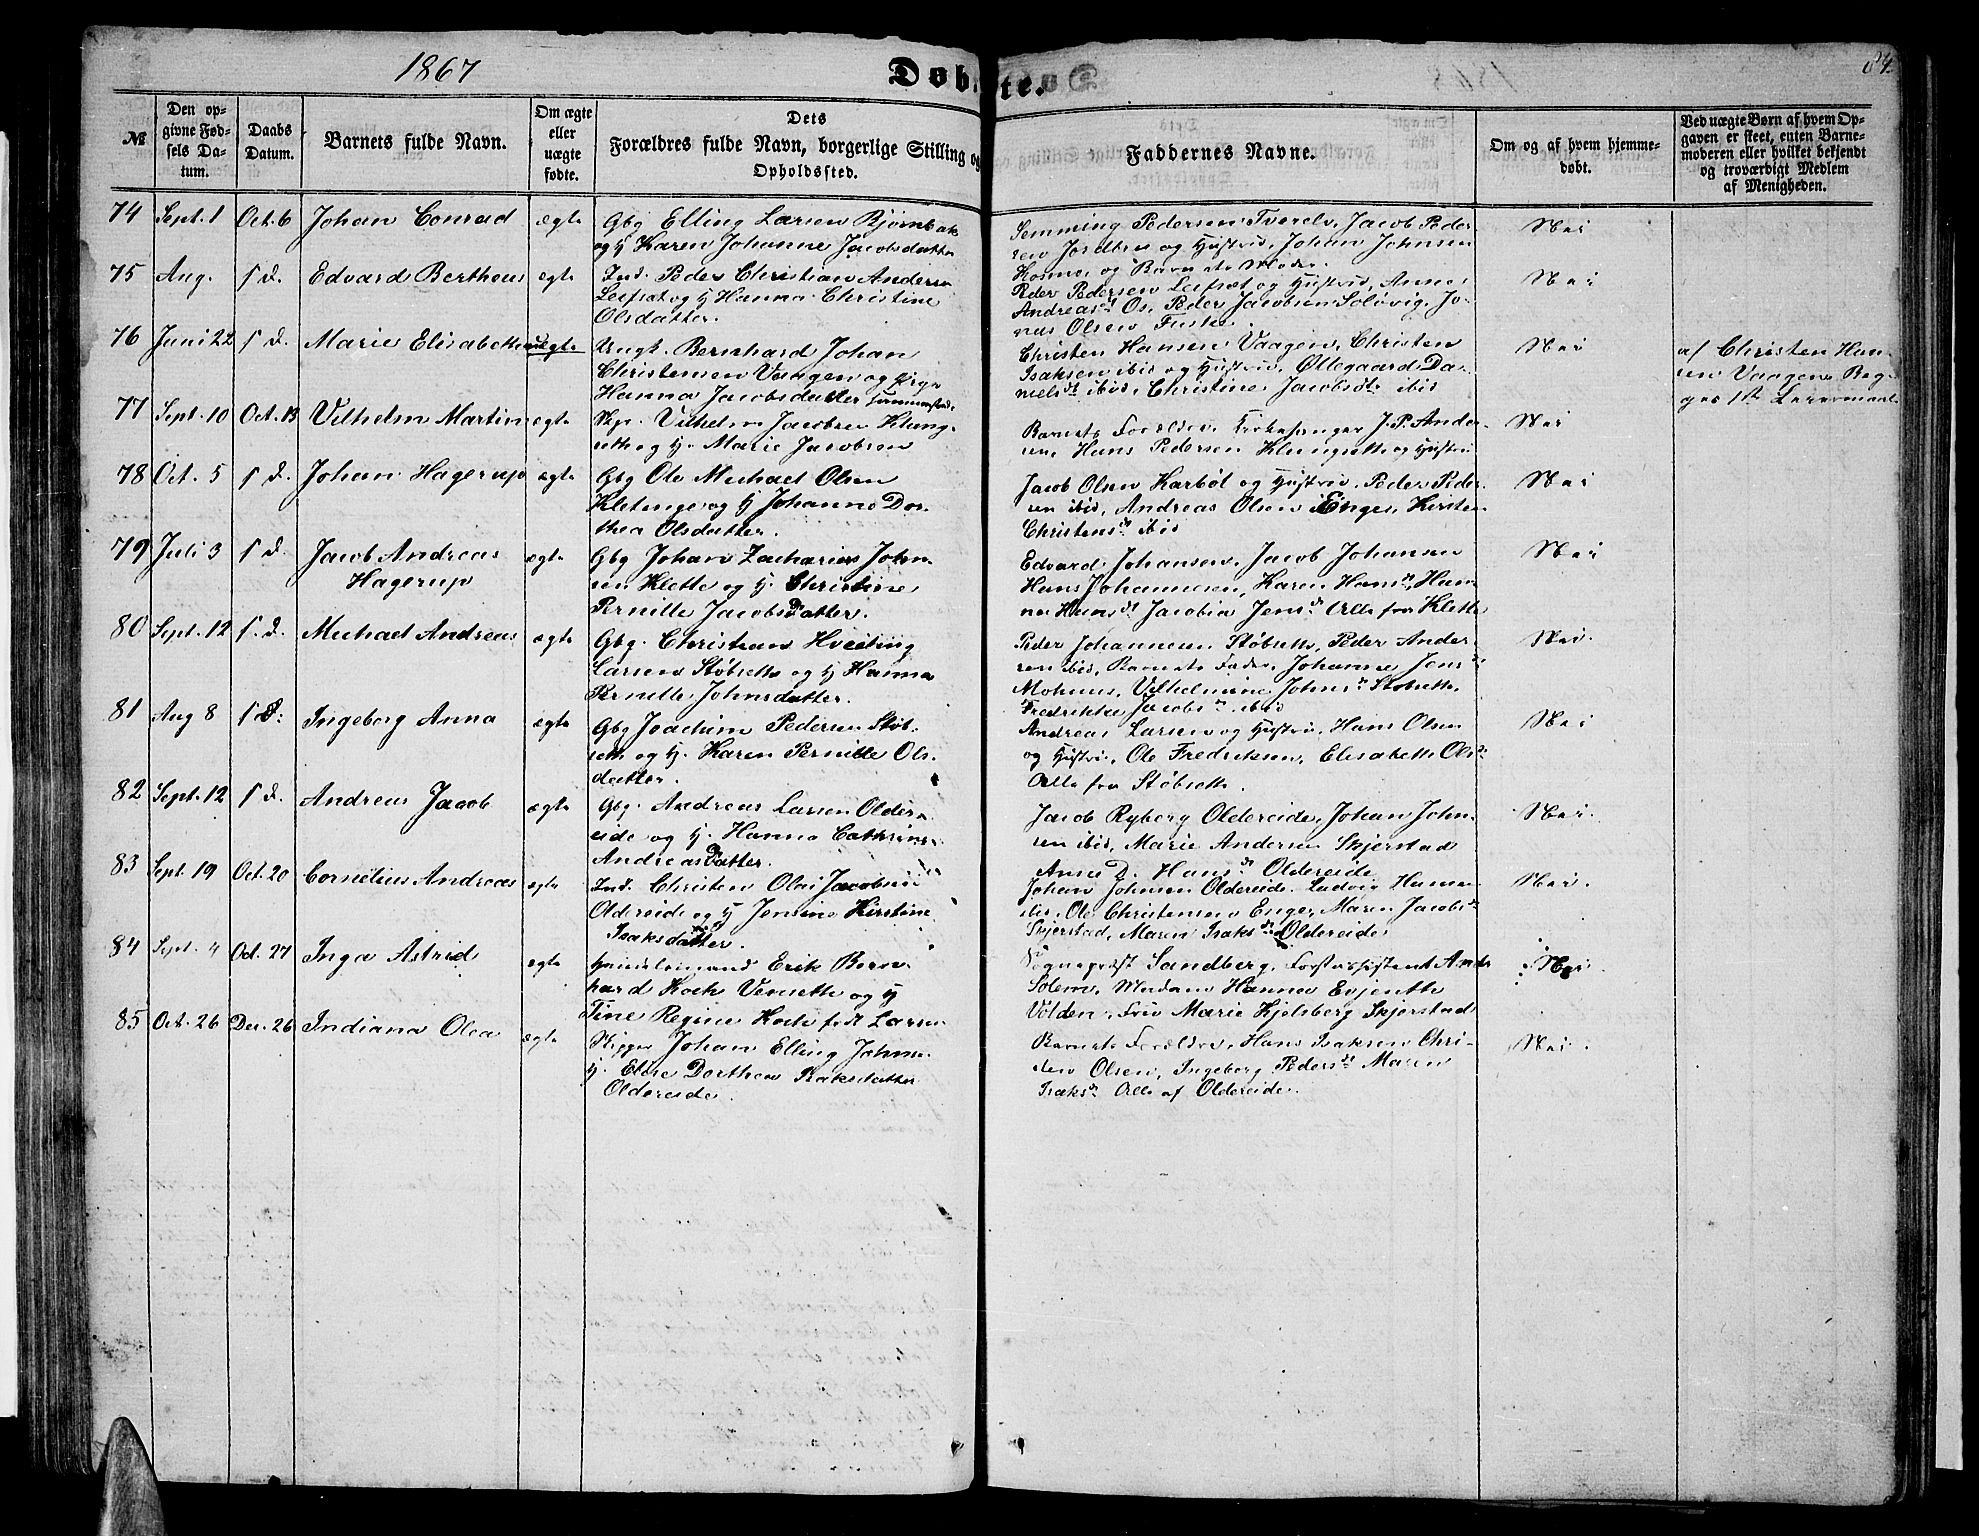 1867
Døbte.
84.
№
Den op-
givne Fød-
sels Da-
tum.
Daabs
Datum.
Barnets fulde Navn.
Om ægte
eller
uægte
fødte.
Dets
Forældres fulde Navn, borgerlige Stilling og
Opholdssted.
Faddernes Navne.
Om og af hvem hjemme-
døbt.
Ved uægte Børn af hvem Op-
gaven er skeet, enten Barne-
moderen eller hvilket bekjendt
og troværdigt Medlem
af Menigheden.
74 Sept. 1 Oct. 6 Johan Conrad ægte
Gbg Elling Larsen Bjørnbak
og H Karen Johanne Jacobsdatter
Semming Pedersen Tverelv, Jacob Peder
sen Jordbru og Hustru, Johan Johnsen
Kosmo, og Barnets Moder.
Nei
75 Aug. 1 S. D. Edvard Bertheus ægte
Ind. Peder Christian Andersen
Leifset og H Hanna Christine
Olsdatter.
Peder Pedersen Leifset og Hustru, Anne
Andreasdt Os, Peder Jacobsen Soløvig, Jo-
nas Olsen Fuske.
Nei
76 Juni 22 S. D. Marie Elisabeth uægte
Ungk. Bernhard Johan
Christensen Vaagen og Pige
Hanna Jacobsdatter
Christen Hansen Vaagen, Christen
Isaksen ibid og Hustru, Ollegaard Da-
nielsdt ibid, Christine Jacobsdt ibid
Nei
af Christen Han-
sen Vaagen. Beg-
ges 1ste Leiermaal.
77 Sept. 10 Oct. 13 Vilhelm Martin ægte
Vilhelm Jacobsen Klung-
seth og H. Marie Jacobsen
Barnets Forældre, Kirkesanger J. P. Ander-
sen, Hans Pedersen Klungseth og Hustru
Nei
78 Oct. 5 S. D. Johan Hagerup ægte
Gbg Ole Michael Olsen
Kletinge og H Johanne Dor-
thea Olsdatter.
Jacob Olsen Karbøl og Hustru, Peder Peder-
sen ibid, Andreas Olsen Enge, Kirsten
Christensdt ibid
Nei
79 Juli 3 S. D. Jacob Andreas
Hagerup ægte
Gbg Johan Zacharias John-
sen Klette og H. Christine
Pernille Jacobsdatter.
Edvard Johansen, Jacob Johansen
Hans Johannesen, Karen Hansdt, Han-
na Hansdt Jacobia Jensdt Alle fra Klette
Nei
80 Sept. 12 S. D. Michael Andreas ægte
Gbg. Christian Hveding
Larsen Støbseth og H Hanna
Pernille Johnsdatter.
Peder Johannesen Støbseth, Peder Ander-
sen ibid, Barnets Fader, Johanna Jensdt
Mohuus, Vilhelmine Johnsdt Støbseth,
Fredrikke Jacobsdt ibid
Nei.
81 Aug 8 S. D. Ingeborg Anna ægte
Gbg Joachim Pedersen Støb-
seth og H. Karen Pernille Ols-
datter.
Andreas Larsen og Hustru, Hans Olsen
og Hustru, Ole Fredriksen, Elisabeth Olsdt
Alle fra Støbseth.
Nei
82 Sept. 12 S. D. Andreas Jacob ægte
Gbg. Andreas Larsen Older-
eide og H. Hanna Cathrine
Andreasdatter.
Jacob Ryberg Oldereide, Johan John-
sen ibid, Marie Andersen Skjerstad
Anne D. Hansdt Oldereide
Nei.
83 Sept. 19 Oct. 20 Cornelius Andreas ægte
Ind. Christen Olai Jacobsen
Oldereide og H Jensine Kirstine
Isaksdatter.
Johan Johnsen Oldereide, Ludvig
Ole Christensen Enge, Maren Jacobsdt
Skjerstad, Maren Isaksdt Oldereide
Nei.
84 Sept. 4 Oct. 27 Inga Astrid ægte
Handelsmand Erik Bern-
hard Koch Venseth og H
Tine Regine Koch født Larsen
Sognepræst Sandberg, Forstassistent Ands
Solem, Madam Hanna Evjenth
Volden, Fru Marie Kjelsberg Skjerstad
Nei.
85 Oct. 26 Dec. 26 Indiana Olea ægte
Skipper Johan Elling Johnsen
H. Elise Dorthea Isaksdatter
Oldereide.
Barnets Forældre, Hans Isaksen Chri-
sten Olsen, Ingeborg Pedersdt Maren
Isaksdt Alle af Oldereide.
Nei.